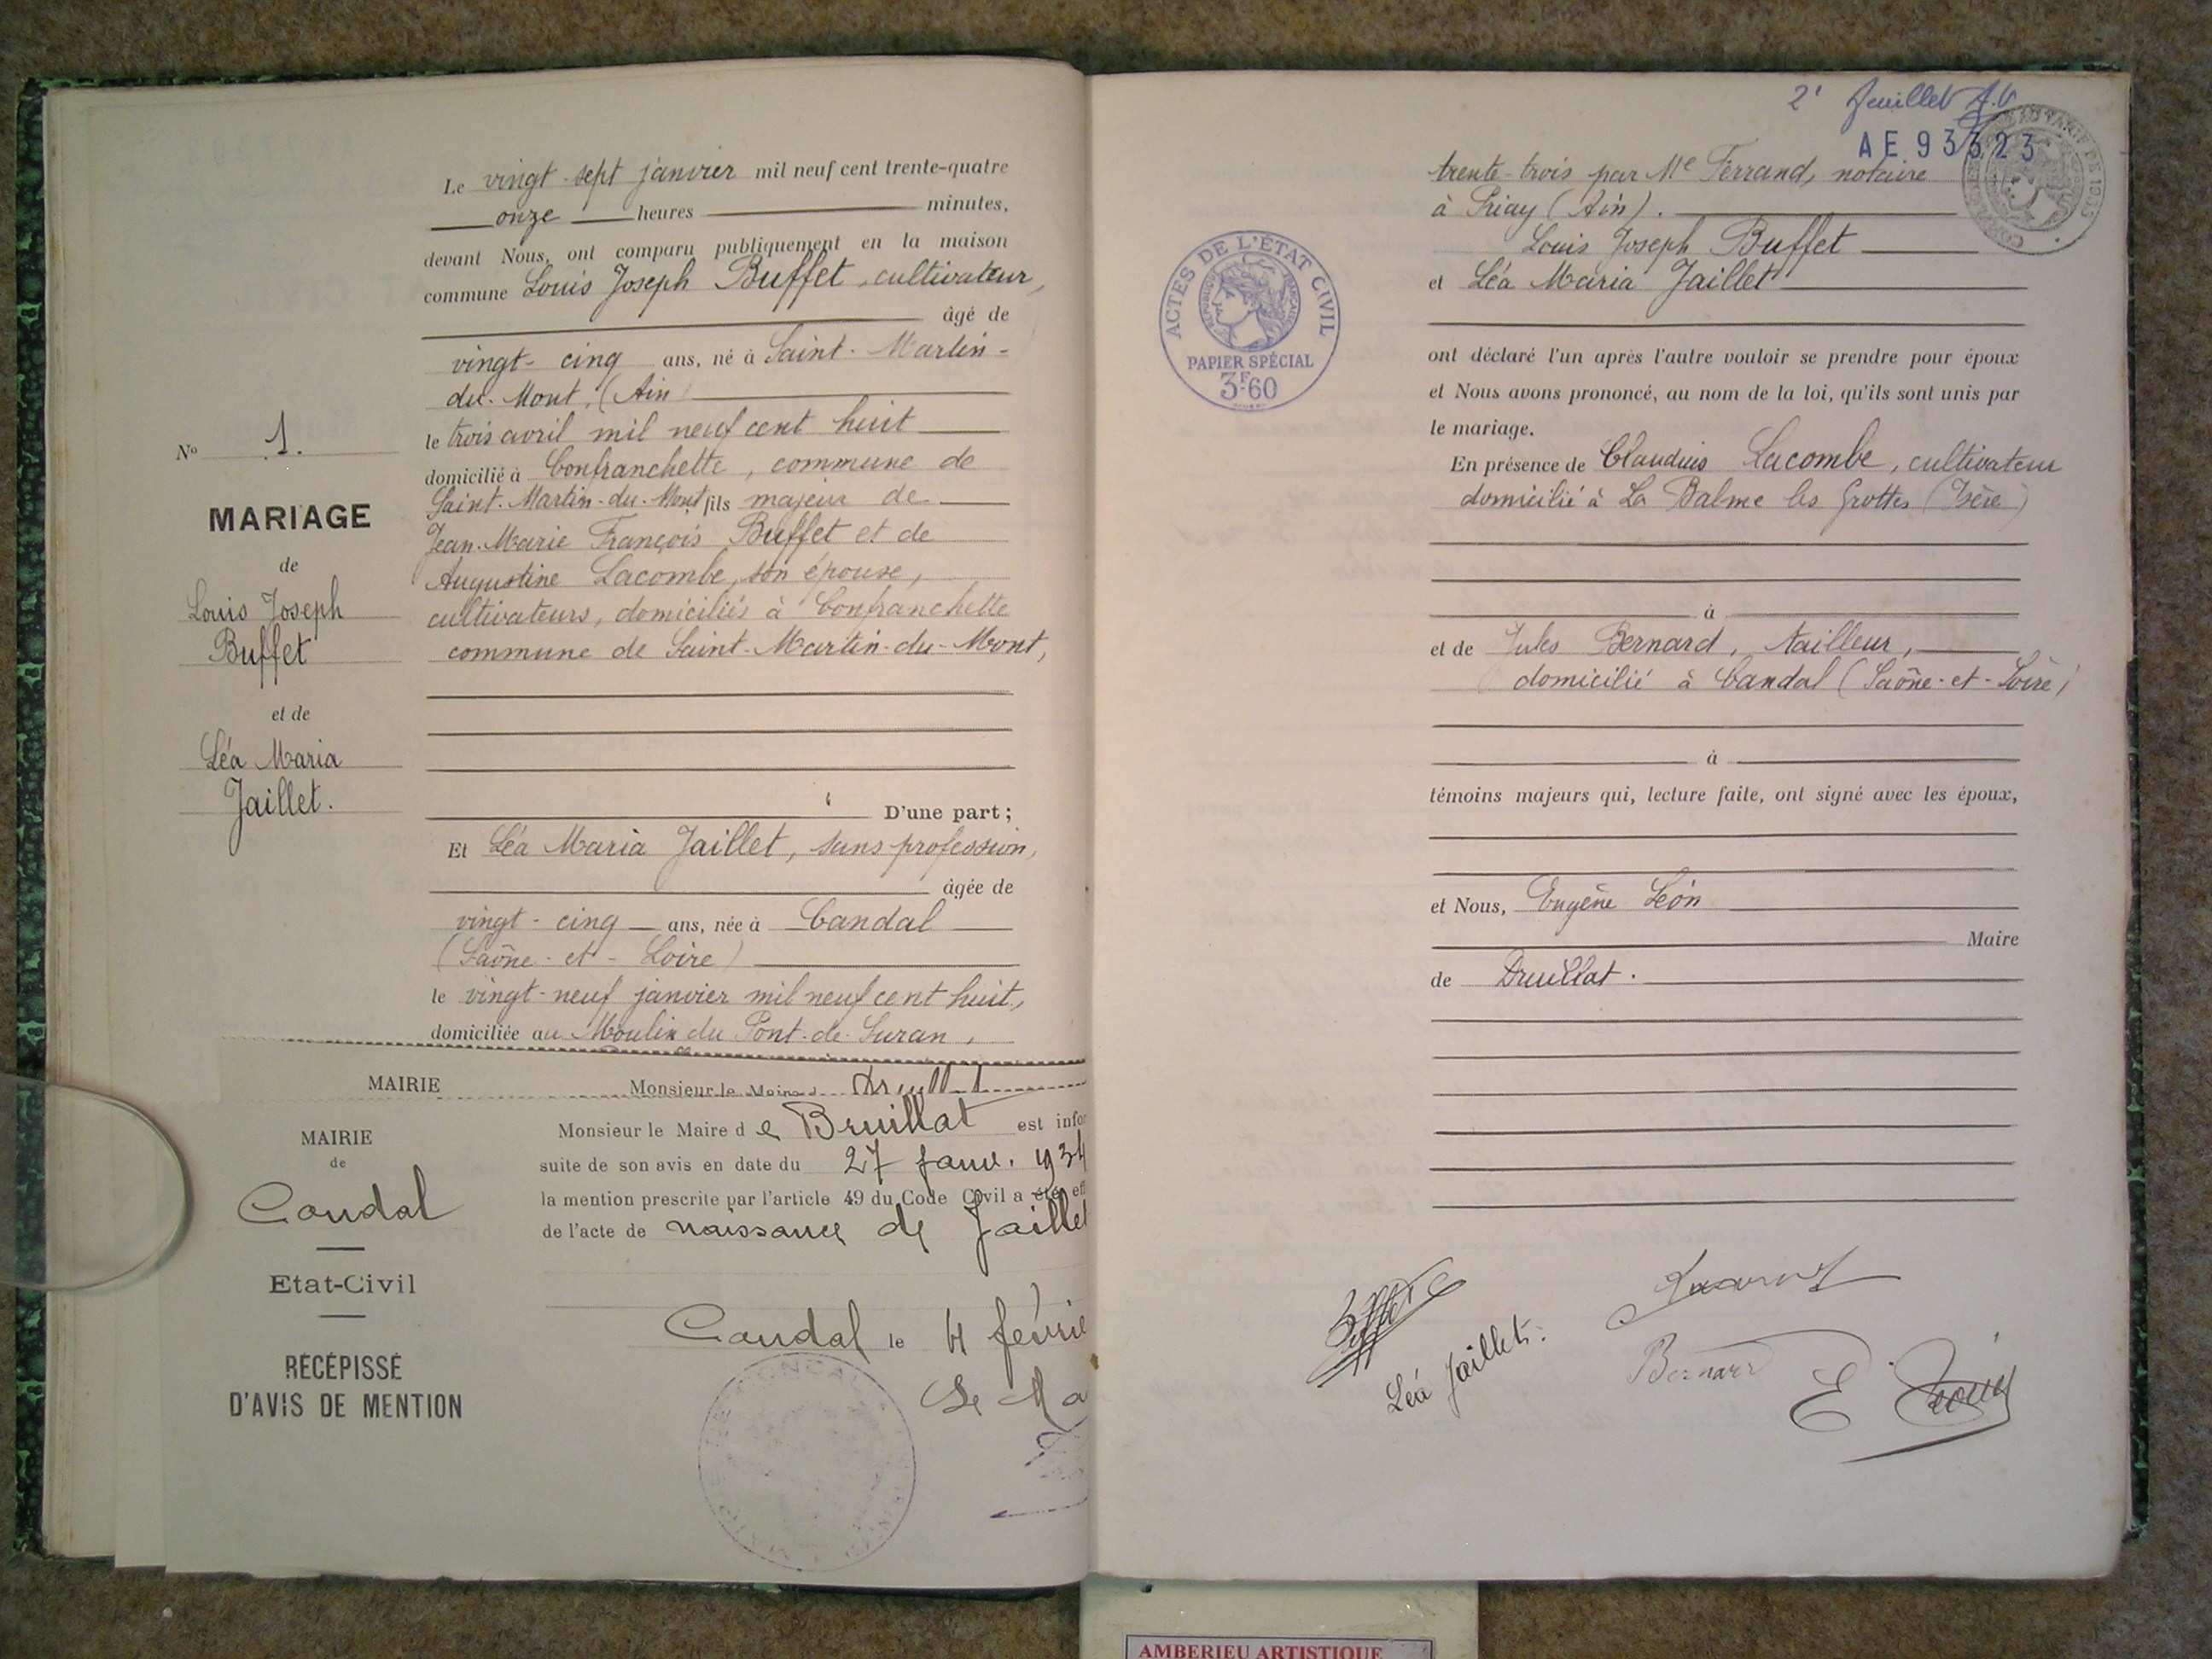 N° 1.
MARIAGE
de
Louis Joseph
Buffet
et de
Léa Maria
Jaillet.
Le vingt-sept janvier mil neuf cent trente-quatre
onze heures minutes,
devant Nous, ont comparu publiquement en la maison
commune Louis Joseph Buffet, cultivateur,
âgé de
vingt-cinq ans, né à Saint-Martin-
du-Mont, (Ain)
le trois avril mil neuf cent huit
domicilié à Confranchette, commune de
Saint-Martin-du-Mont, fils majeur de
Jean-Marie François Buffet et de
Augustine Lacombe, son épouse,
cultivateurs, domiciliés à Confranchette
commune de Saint-Martin-du-Mont,
D'une part;
Et Léa Maria Jaillet, sans profession,
âgée de
vingt-cinq ans, née à Candal
(Saône-et-Loire)
le vingt-neuf janvier mil neuf cent huit,
domiciliée au Moulin du Pont-de-Suran,
MAIRIE Monsieur le Maire d
MAIRIE
de
Condal
Etat-Civil
RÉCÉPISSÉ
D'AVIS DE MENTION
Monsieur le Maire de Bruillat est infor
suite de son avis en date du 27 janv. 1934
la mention prescrite par l'article 49 du Code Civil a été eff
de l'acte de naissance de Jaillet
Condal le 4 févrie
Le Ma
2e feuillet
AE 93323
ACTES DE L'ÉTAT CIVIL
RÉPUBLIQUE FRANÇAISE
PAPIER SPÉCIAL
3F60
trente-trois par Me Ferrand, notaire
à Priay (Ain).
Louis Joseph Buffet
et Léa Maria Jaillet
ont déclaré l'un après l'autre vouloir se prendre pour époux
et Nous avons prononcé, au nom de la loi, qu'ils sont unis par
le mariage.
En présence de Claudius Lacombe, cultivateur
domicilié à La Balme les Grottes (Isère)
à
et de Jules Bernard, tailleur,
domicilié à Candal (Saône-et-Loire)
à
témoins majeurs qui, lecture faite, ont signé avec les époux,
et Nous, Eugène Léon
Maire
de Druillat.
Buffet
Léa Jaillet.
Bernard
E Léon
AMBERIEU ARTISTIQUE